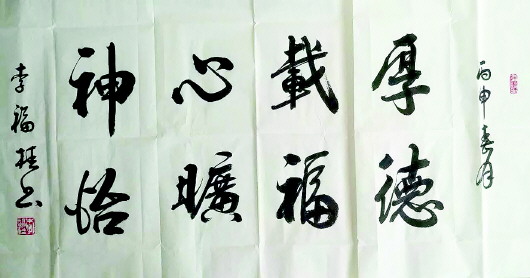 丙申春月
厚德
載福
心曠
神怡
李福桂书